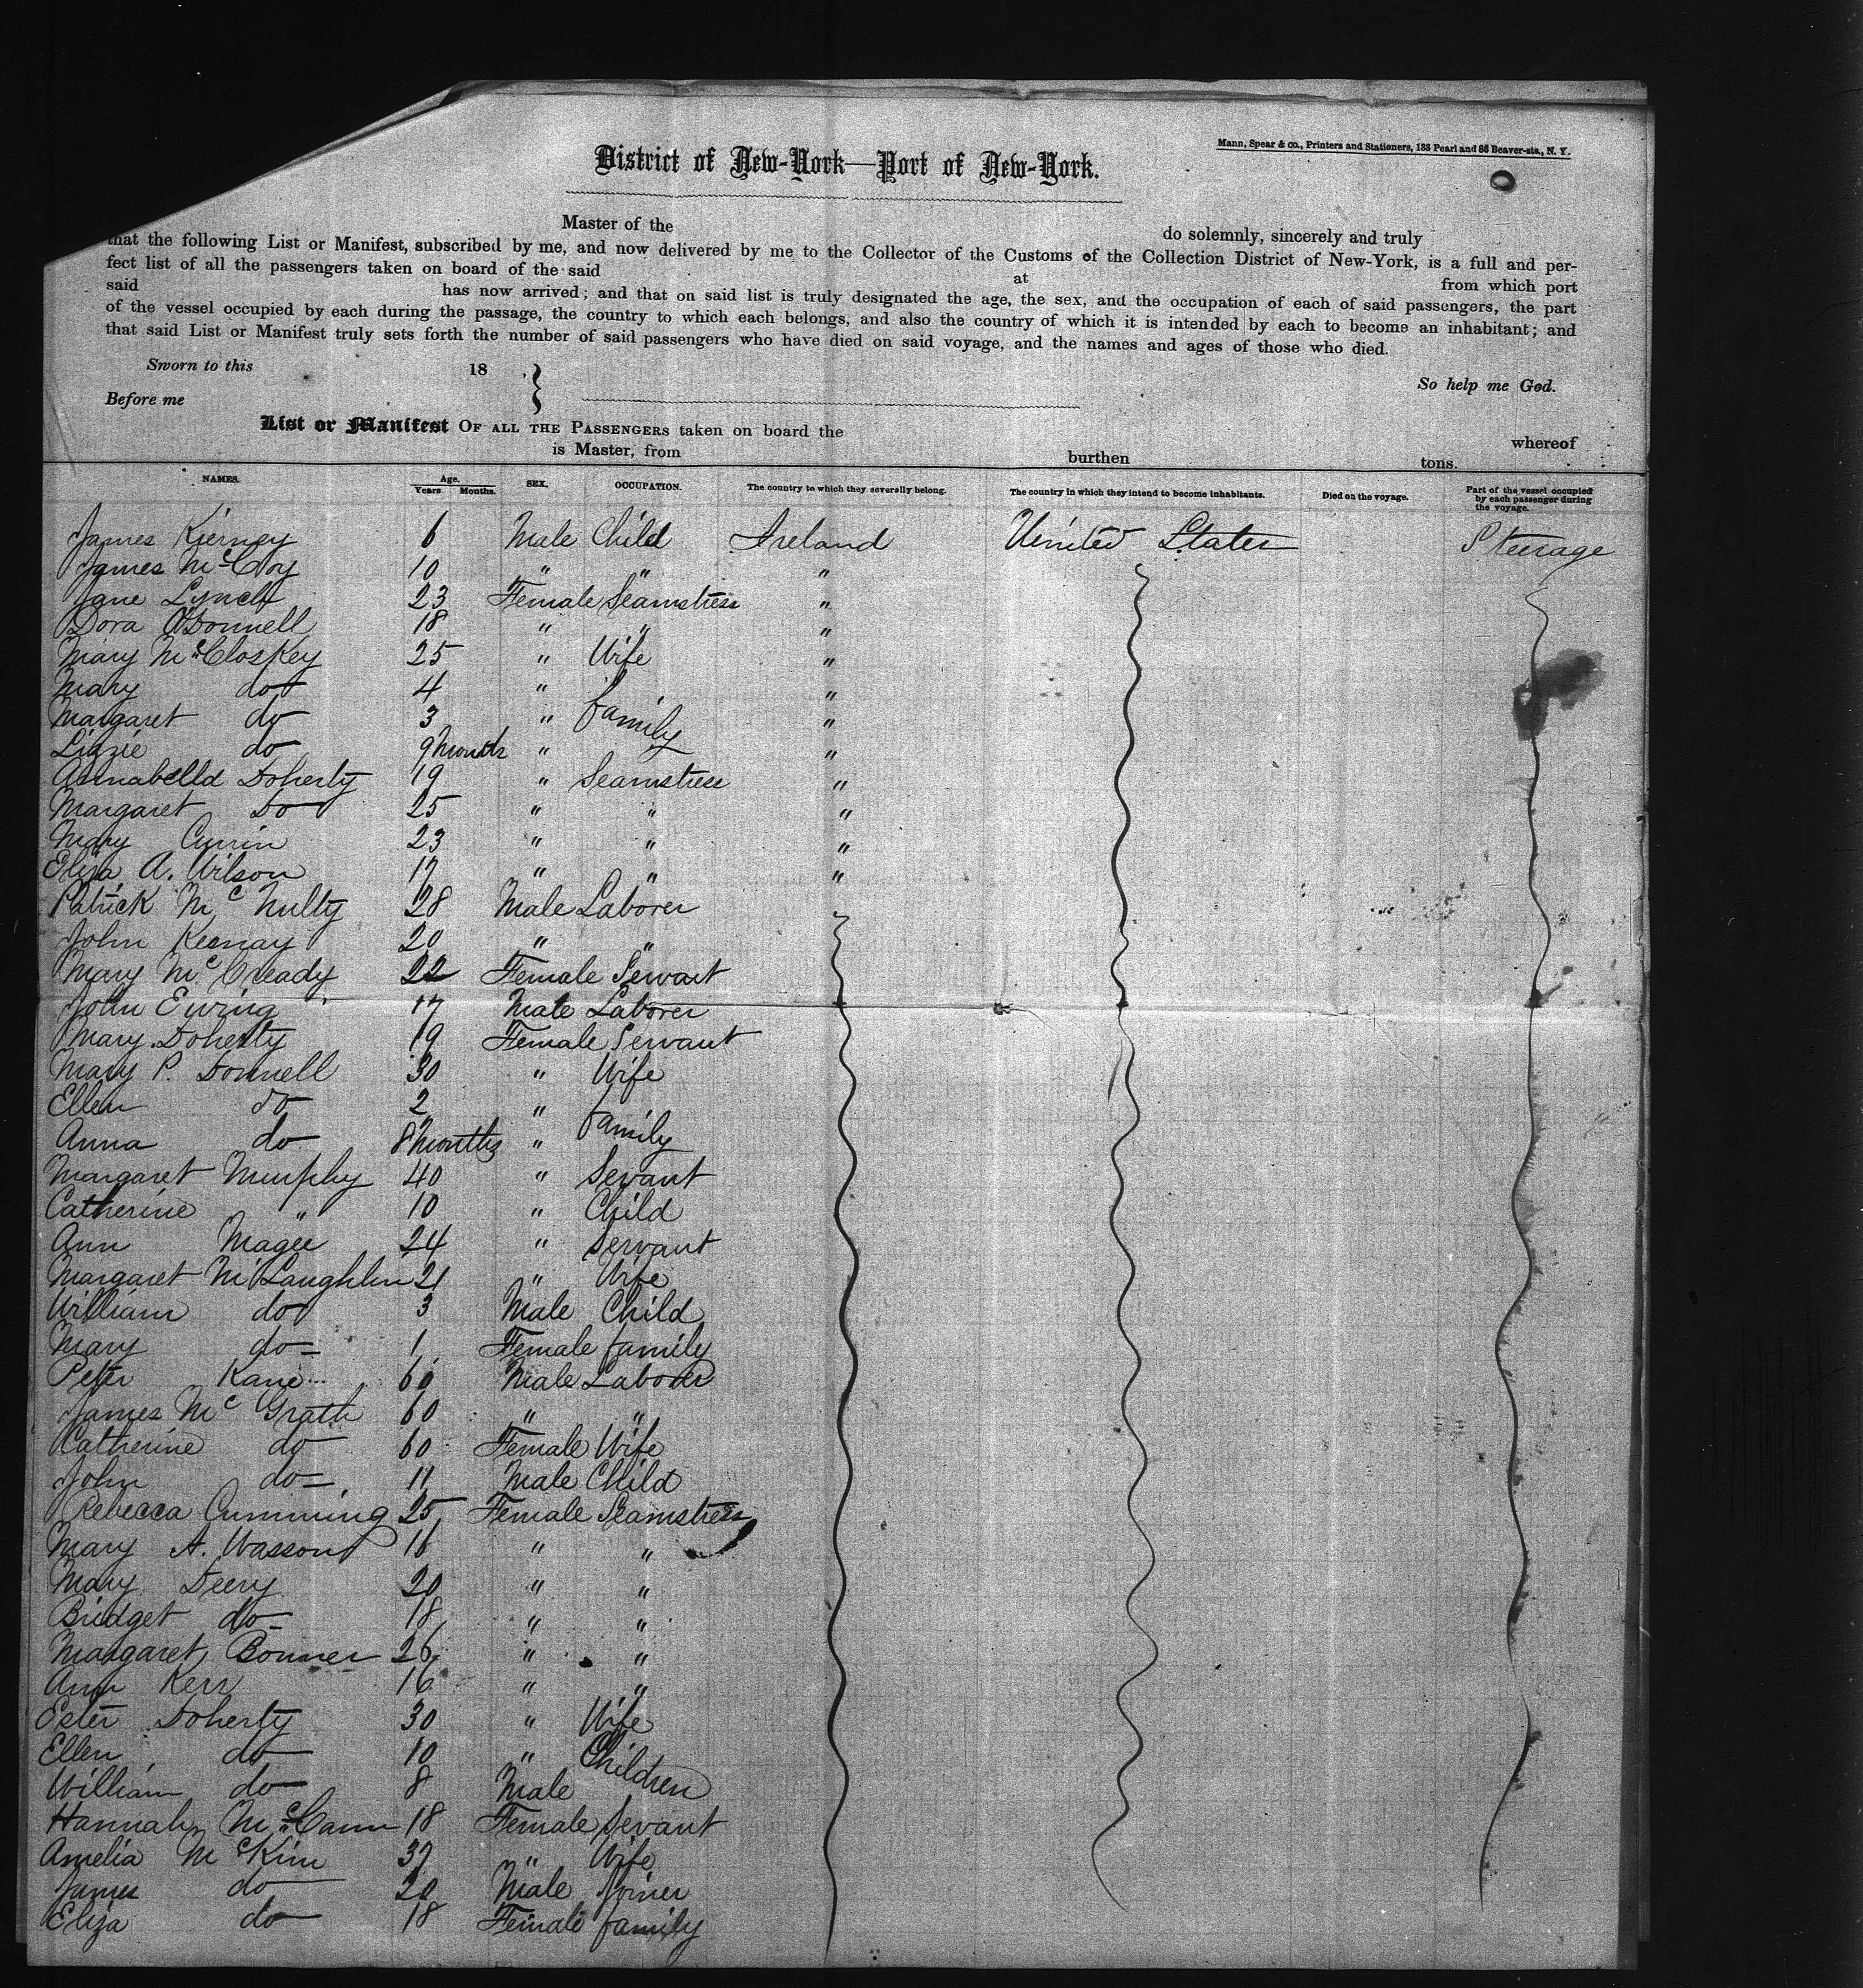 Mann, Spear & co., Printers and Stationers, 188 Pearl and 86 Beaver-sts., N. Y.
District of New-York—Port of New-York.
Master of the do solemnly, sincerely and truly
that the following List or Manifest, subscribed by me, and now delivered by me to the Collector of the Customs of the Collection District of New-York, is a full and per-
fect list of all the passengers taken on board of the said at from which port
said has now arrived; and that on said list is truly designated the age, the sex, and the occupation of each of said passengers, the part
of the vessel occupied by each during the passage, the country to which each belongs, and also the country of which it is intended by each to become an inhabitant; and
that said List or Manifest truly sets forth the number of said passengers who have died on said voyage, and the names and ages of those who died.
Sworn to this 18 , So help me God.
Before me
List or Manifest OF ALL THE PASSENGERS taken on board the whereof
is Master, from burthen tons.
NAMES. Age. Years Months. SEX. OCCUPATION. The country to which they severally belong. The country in which they intend to become inhabitants. Died on the voyage. Part of the vessel occupied by each passenger during the voyage.
James Kierney 6 Male Child Ireland United States Steerage
James McCoy 10 " " "
Jane Lynch 23 Female Seamstress "
Dora O'Donnell 18 " " "
Mary McCloskey 25 " Wife "
Mary do 4 " "
Margaret do 3 " family "
Lizzie do 9 Months " "
Annabella Doherty 19 " Seamstress "
Margaret Do 25 " " "
Mary Currin 23 " " "
Eliza A. Wilson 17 " " "
Patrick Mc Nulty 28 Male Laborer
John 20 " "
Mary McCready 22 Female Servant
John Ewing 17 Male Laborer
Mary Doherty 19 Female Servant
Mary P. Donnell 30 " Wife
Ellen do 2 " family
Anna do 8 months "
Margaret Murphy 40 " Servant
Catherine " 10 " Child
Ann Magee 24 " Servant
Margaret McLaughlin 21 " Wife
William do 3 Male Child
Mary do 1 Female family
Peter Kane 60 Male Laborer
James Mc Grath 60 " "
Catherine do 60 Female Wife
John do 11 Male Child
Rebecca Cumming 25 Female Seamstress
Mary A. Wasson 16 " "
Mary Deery 20 " "
Bridget do 18 " "
Margaret Bonner 26 " "
Ann Kerr 16 " "
Ester Doherty 30 " Wife
Ellen do 10 " Children
William do 8 Male
Hannah McCann 18 Female Servant
Amelia McKim 37 " Wife
James do 20 Male Joiner
Eliza do 18 Female family